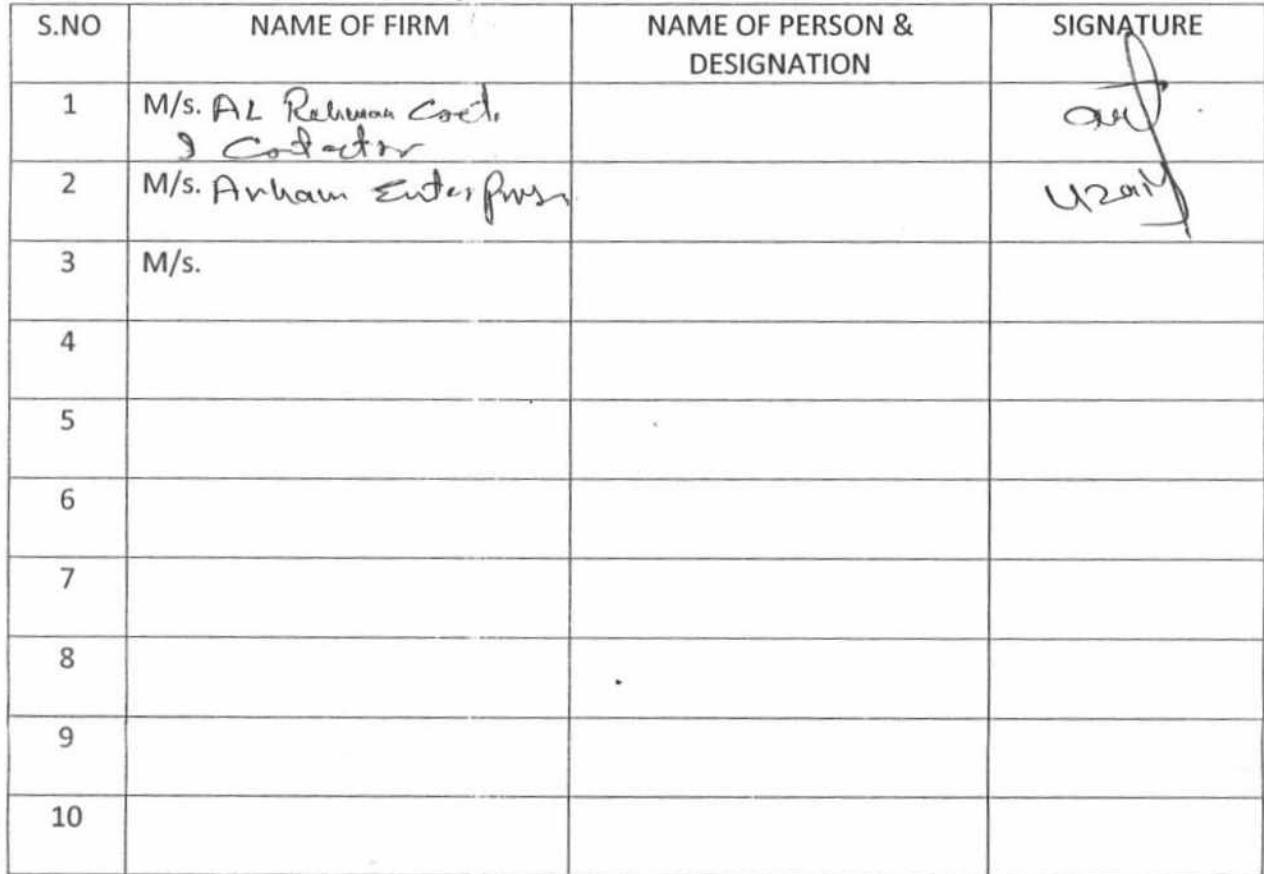 S.NO NAME OF FIRM NAME OF PERSON & SIGNATURE
DESIGNATION
1 M/s. AL Rehman Cost.
& Cotactor
2 M/s. Arham Enterprise Uzair
3 M/s.
4
5
6
7
8
9
10